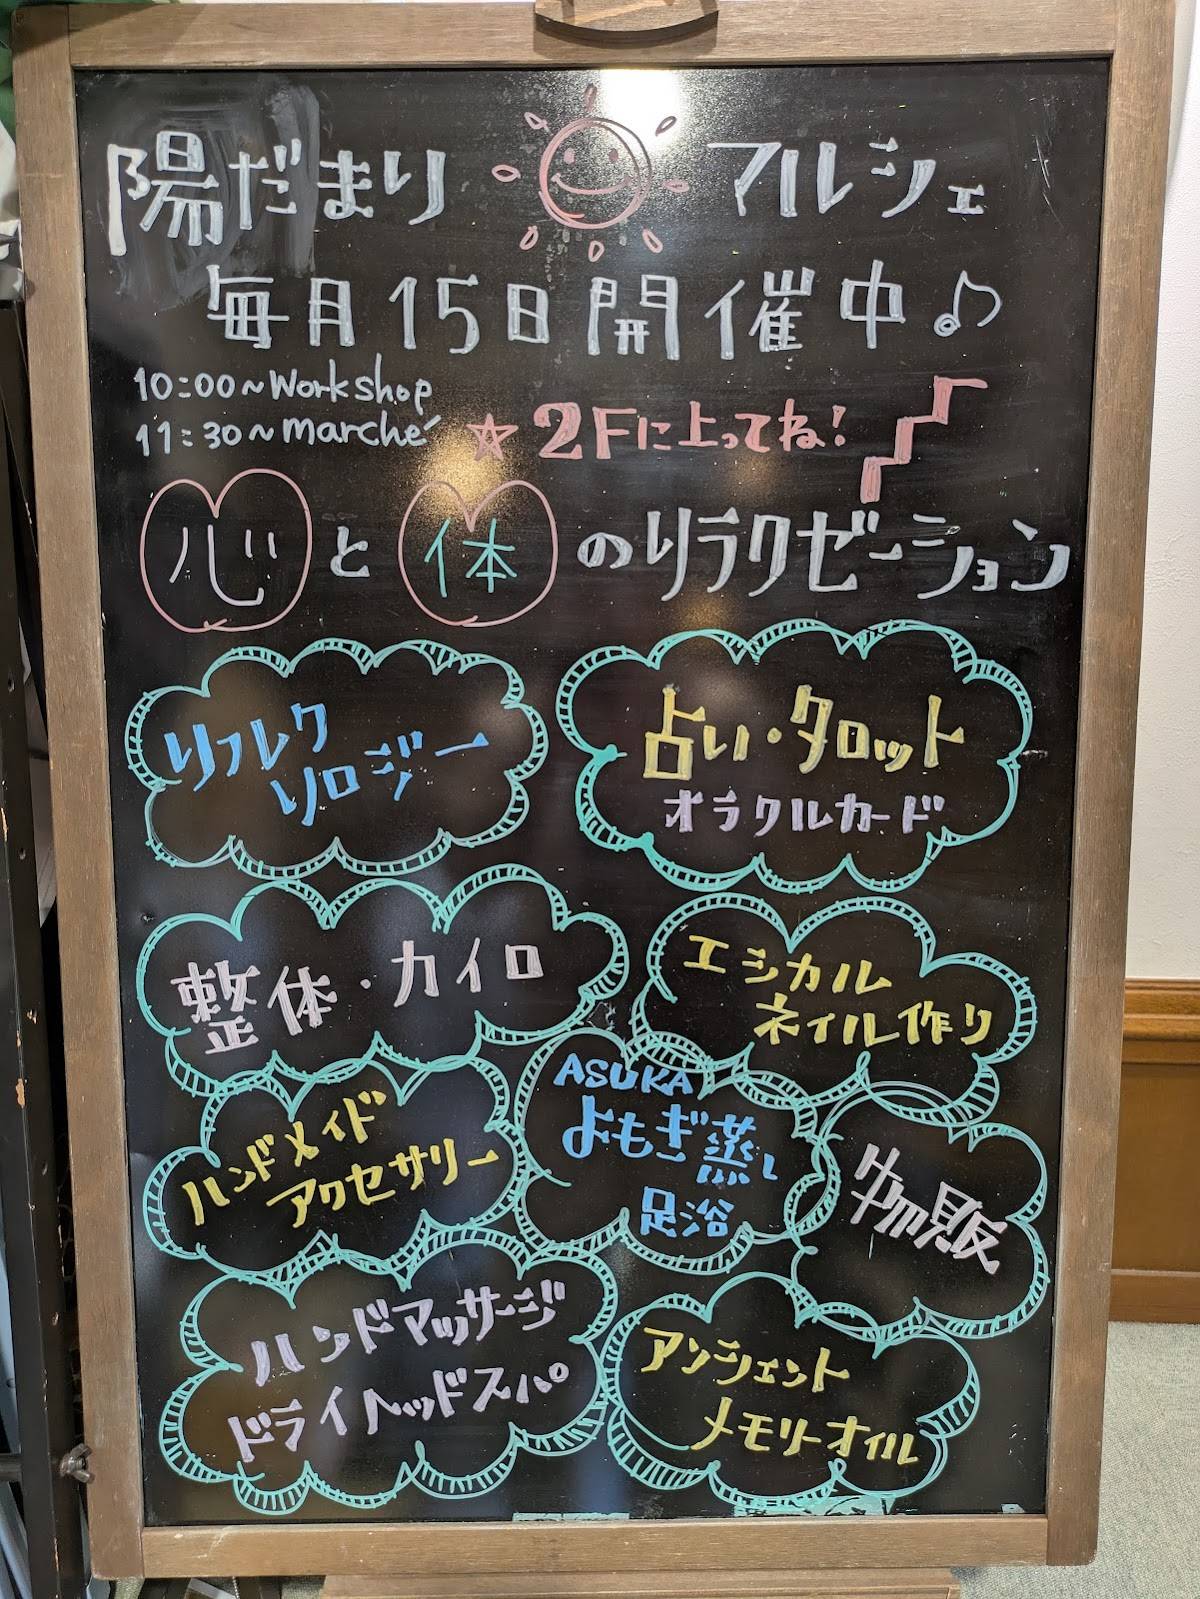 陽だまり マルシェ
毎月15日開催中♪
10:00~Workshop
11:30~marché
☆2Fに上ってね!
心と体のリラクゼーション
リフレク
ソロジー
占い・タロット
オラクルカード
整体・カイロ
エシカル
ネイル作り
ハンドメイド
アクセサリー
ASUKA
よもぎ蒸し
足浴
物販
ハンドマッサージ
ドライヘッドスパ
アンシェント
メモリーオイル